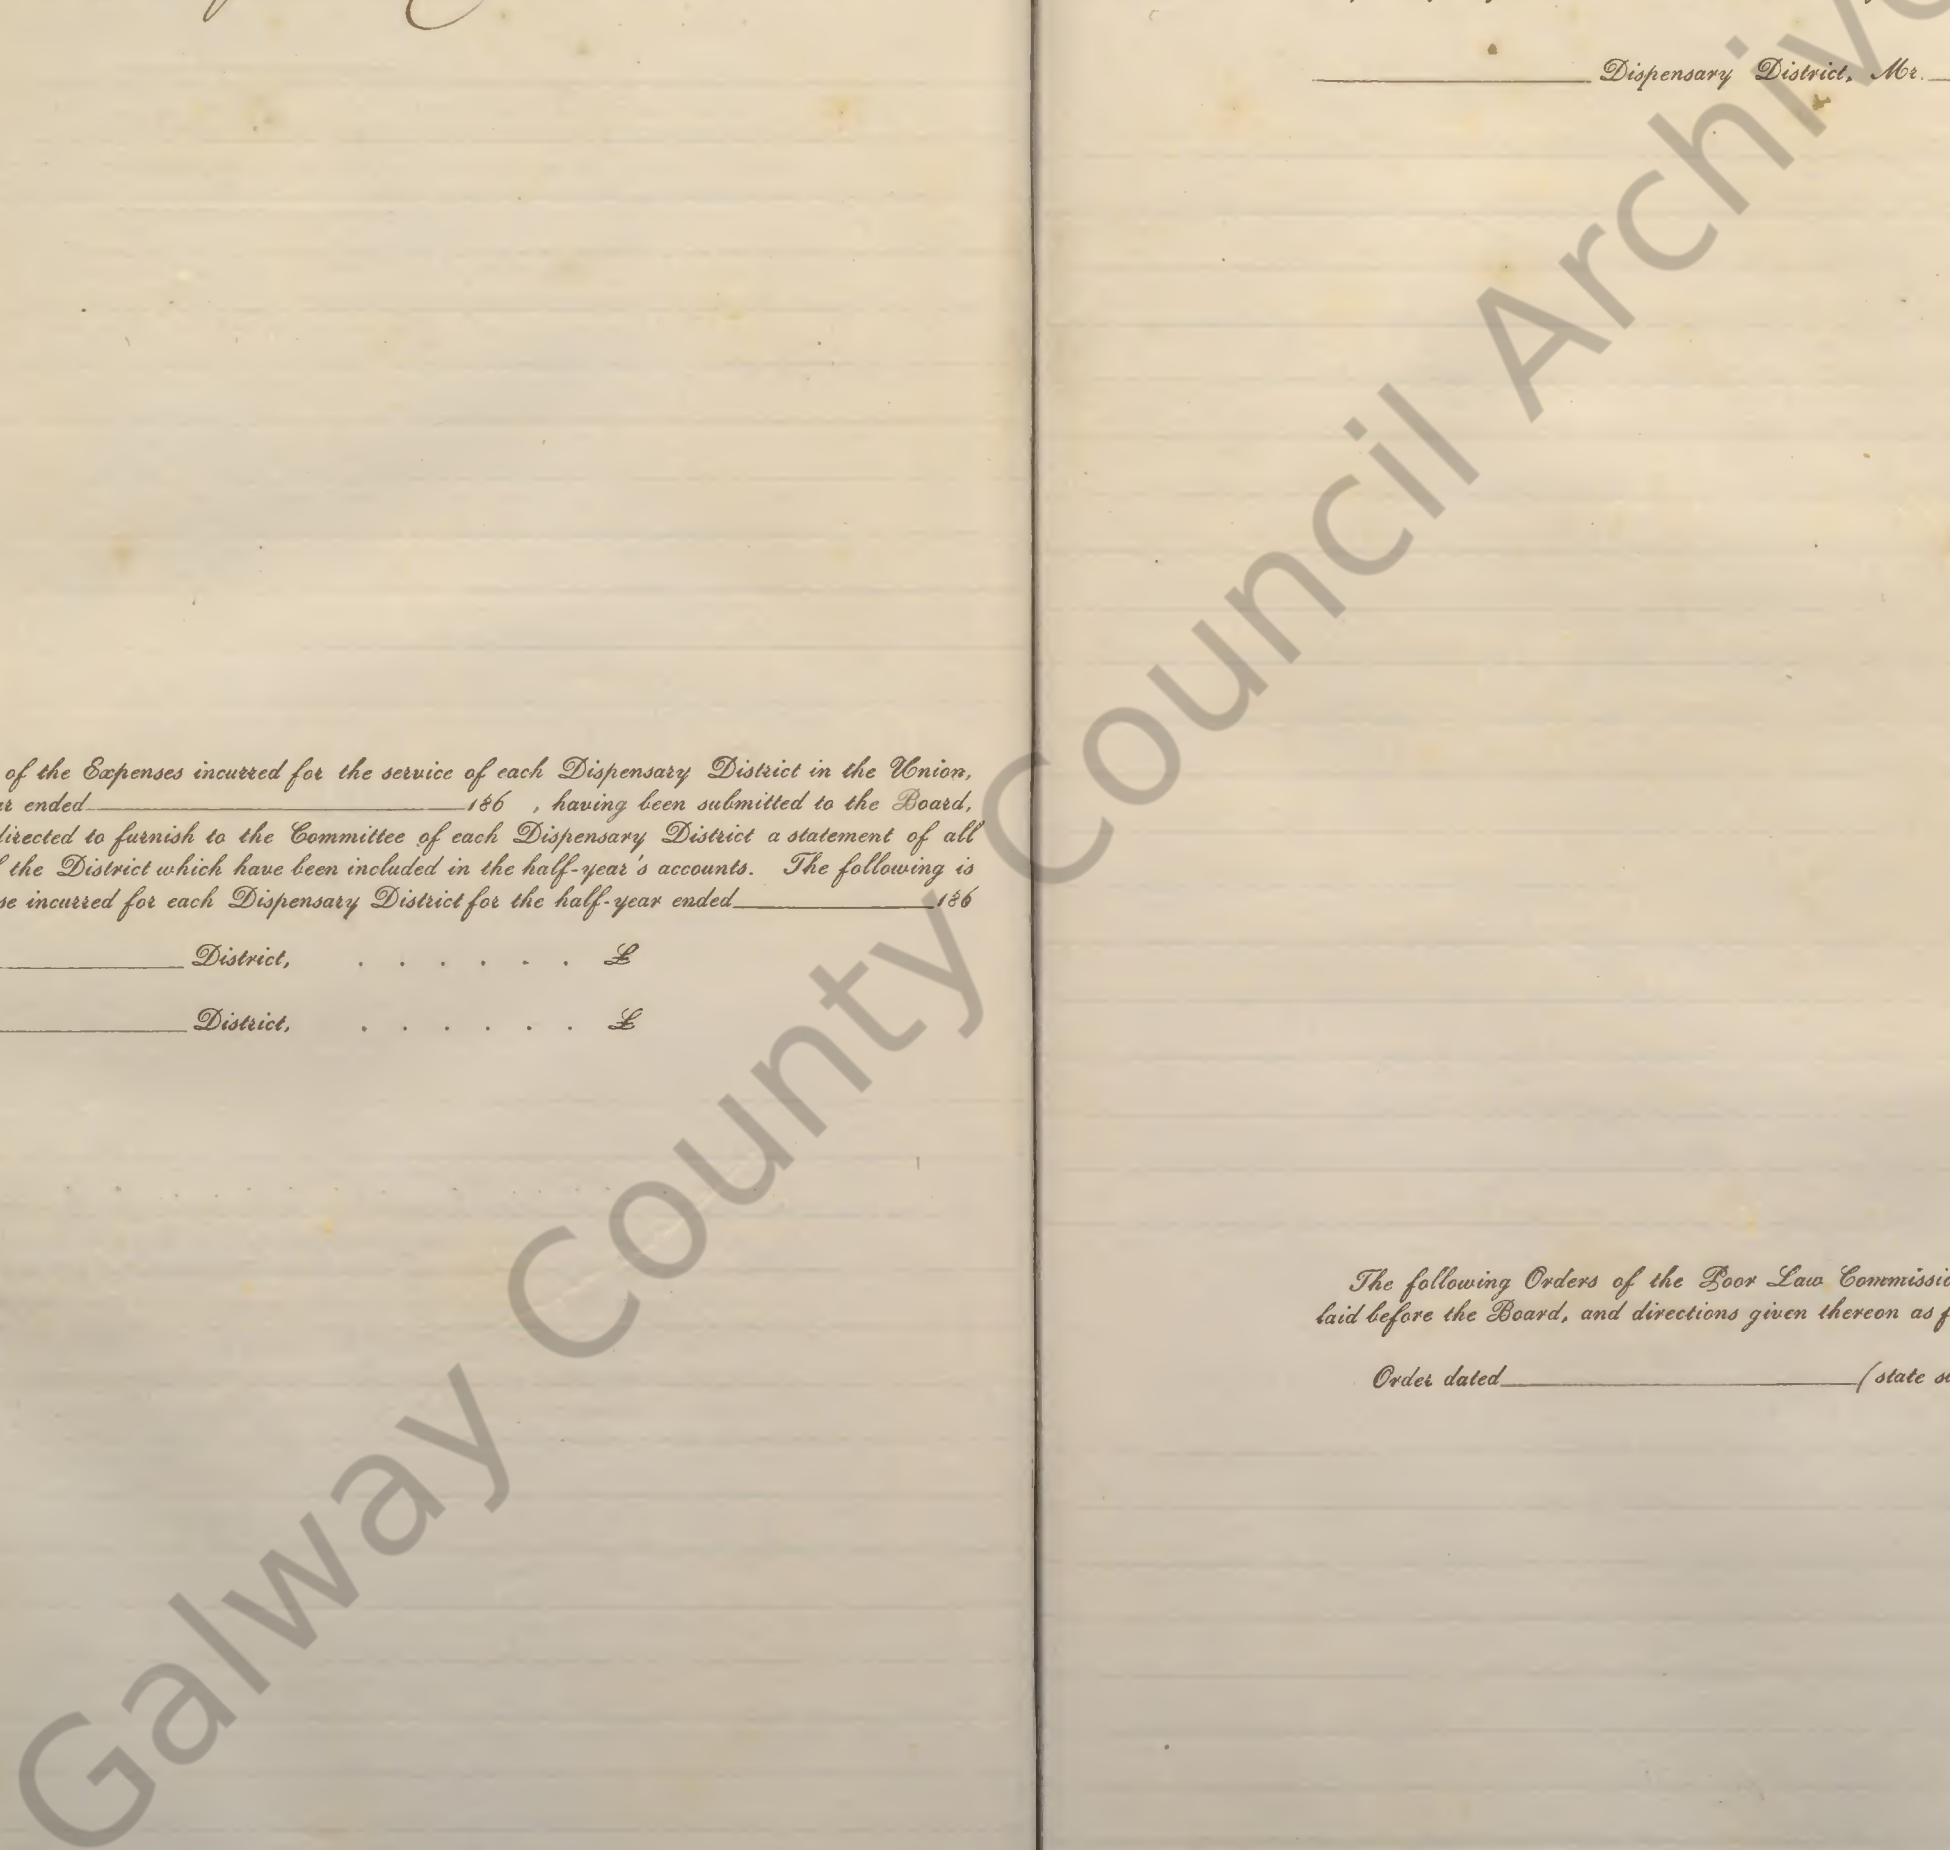 of the Expenses incurred for the service of each Dispensary District in the Union,
ended 186 , having been submitted to the Board,
directed to furnish to the Committee of each Dispensary District a statement of all
the District which have been included in the half-year's accounts. The following is
incurred for each Dispensary District for the half-year ended 186
District, . . . . . . £
District, . . . . . . £
Dispensary District, Mr.
The following Orders of the Poor Law Commissio
laid before the Board, and directions given thereon as f
Order dated (state
Galway County Council Archive